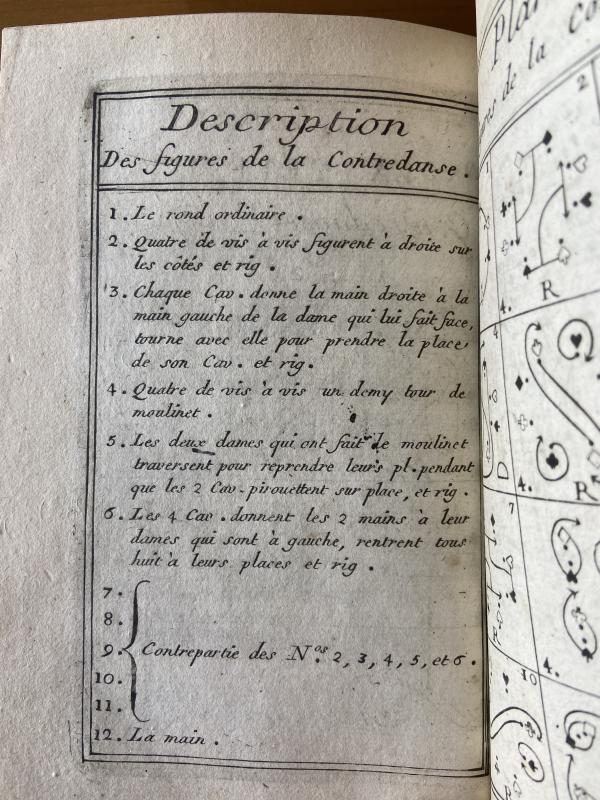 Description
Des figures de la Contredanse.
1. Le rond ordinaire.
2. Quatre de vis à vis figurent à droite sur
les côtés et rig.
3. Chaque Cav. donne la main droite à la
main gauche de la dame qui lui fait face,
tourne avec elle pour prendre la place
de son Cav. et rig.
4. Quatre de vis à vis un demy tour de
moulinet.
5. Les deux dames qui ont fait le moulinet
traversent pour reprendre leurs pl. pendant
que les 2 Cav. pirouettent sur place, et rig.
6. Les 4 Cav. donnent les 2 mains à leur
dames qui sont à gauche, rentrent tous
huit à leurs places et rig.
7.
8.
9. Contrepartie des Nos. 2, 3, 4, 5, et 6.
10.
11.
12. La main.
Plan
de la Co
2
4. R
4
D 4. R
7
4.
10